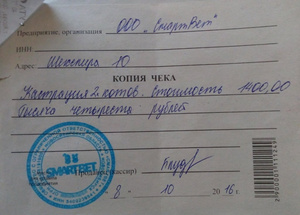 Предприятие, организация ООО "СмартВет"
ИНН
Адрес Шекспира 10
КОПИЯ ЧЕКА
Кастрация 2 котов. Стоимость 1400,00
Тысяча четыреста рублей
SMARTВЕТ
(кассир)
8 - 10 2016 г.